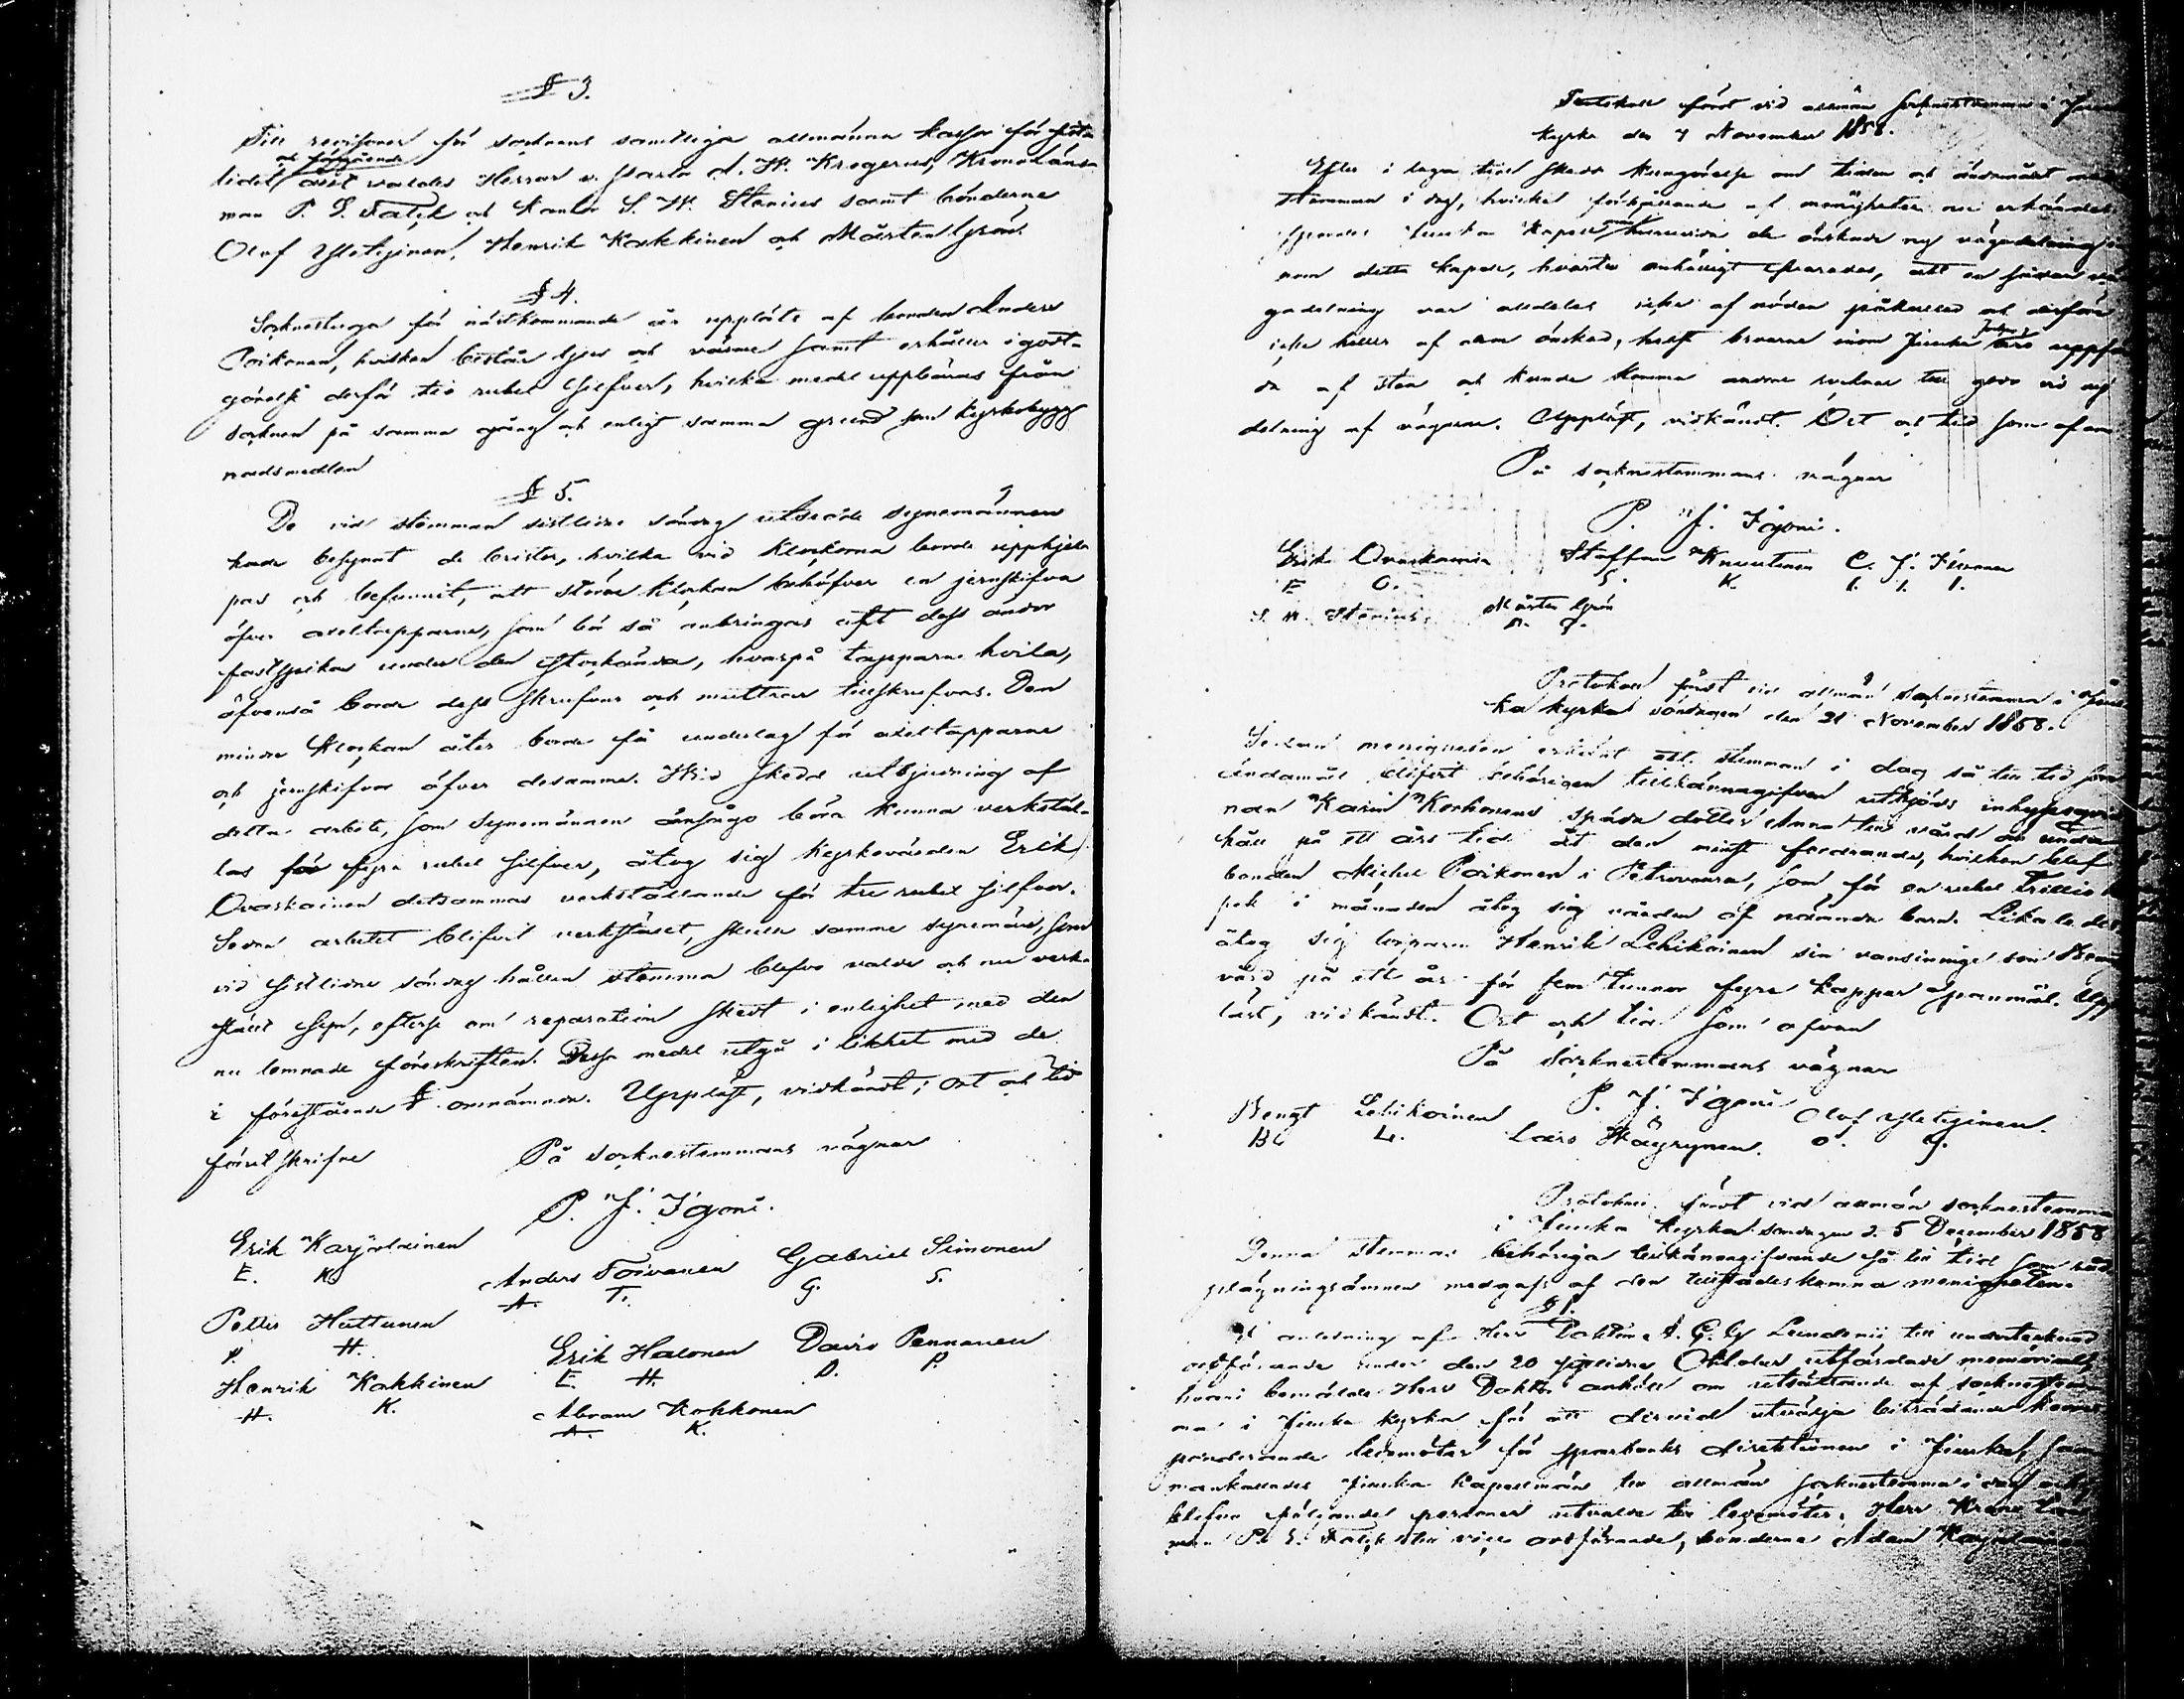 § 3.
Till revisorer för socknens samtliga allmänna kassor för sist-
och föregående
lidet året valdes Herrar v. Pastor A. W. Krogerus, Kronoläns-
man P. E. Falck och Kantor S. W. Stenius samt bönderne
Olof Yletyinen, Henrik Kakkinen och Mårten Grön.
§ 4.
Sockenstuga för nästkommande år uppläts af bonden Anders
Poikonen, hvilken består ljus och värme samt erhåller i godt-
görelse derför tio rubel silfver, hvilka medel uppbäras från
socknen på samma gång och enligt samma grund som kyrkobygg-
nadsmedlen
§ 5.
De vid stämman sistlidne söndag utsedde synemännen
hade besynat de brister, hvilka vid klockorna borde upphjel-
pas och befunnit, att större klockan behöfver en jernskifva
öfver axeltapparne, som bör så anbringas att dess ändor
fastspikas under den stockända, hvarpå tapparne hvila,
äfvenså borde dess skrufvar och muttrar tillskrufvas. Den
mindre klockan åter borde få underlag för axeltapparne
och jernskifvor öfver desamma. Wid skedd utbjudning af
detta arbete, som synemännen ansågo böra kunna verkstäl-
las för fyra rubel silfver, åtog sig kyrkovärden Erik
Ovaskainen detsammas verkställande för tre rubel silfver.
Sedan arbetet blifvit verkstäldt, skulle samme synemän, som
vid sistlidne söndag hållen stämma blefvo valde och nu verk-
ställt syn, efterse om reparation skedt i enlighet med den
nu lemnade föreskriften. Dessa medel utgå i likhet med de
i föregående § omnämnde. Uppläst, vidkändt; ort och tid
förut skrifne
På socknestemmans vägnar
P. J. Igoni.
Erik Karjalainen
E. K.
Anders Toivanen Gabriel Simonen
A. T. G. S.
Petter Huttunen
P. H.
Erik Halonen David Pennanen
E. H. D. P.
Henrik Kakkinen
H. K.
Abram Kokkonen
A. K.
Protokoll fördt vid allmän sockenstämma i Juuka
kyrka den 7 November 1858.
Efter i laga tid skedd kungörelse om tiden och ändamålet med
stämman i dag, hvilket förhållande af menigheten nu erkändes
spordes Juuka kapell de önskade ny vägadelning in
nom detta kapell, hvartill enhälligt svarades, att en sådan vä-
gadelning var alldeles icke af nöden påkallad och derföre
icke heller af dem önskad, helst broarne inom Juuka uppför-
da af sten och kunde komma andre socknar till godo vid ny
delning af vägarne. Uppläst, vidkändt. Ort och tid som ofvan
På socknestemmans vägnar
P. J. Igoni.
Erik Ovaskainen Staffan Knuutinen C. J. 
E. O. S. K. 
S. W. Stenius. Mårten Grön
M. G.
Protokoll fördt vid allmän socknestemma i Juu-
ka kyrka söndagen den 21 November 1858.
Sedan menigheten erkänt att stemman i dag så till tid som
ändamål blifvit behörigen tillkännagifven utbjöds inhysesqvin-
nan Karin Korhonens späda dotter Anna till vård och under-
håll på ett års tid åt den minst fordrande, hvilken blef
bonden Michel Poikonen i Petrovaara, som för en rubel trettio ko-
pek i månaden åtog sig vården af nämnda barn. Likaledes
åtog sig Henrik Lehikoinen sin vansinnige son 
vård på ett år för fem tunnor fyra kappar spanmål. Upp-
läst, vidkändt. Ort och tid som ofvan
På socknestemmans vägnar
P. J. Igoni
Bengt Lehikoinen Olof Yletyinen.
B. L. Lars Häyrynen. O. Y.
Protokoll fördt vid allmän sockenstemma
i Juuka kyrka söndagen d. 5 December 1858
Denna stemmas behöriga tillkännagifvande så till tid som råd-
plägningsämnen medgafs af den tillstädeskomna menigheten.
§ 1.
I anledning af Herr Doktor A. G. G. Lundenii till undertecknad
ordförande under den 20 sistlidne Oktober utfärdade memorial,
hvari bemälde Herr Doktor anhåller om utsättande af sockenstem-
ma i Juuka kyrka för att dervid utvälja biträdande korres-
ponderande ledamöter för sparbanks direktionen i Juuka, sam-
mankallades Juuka kapellmän till allmän sockenstemma i dag och
blefvo följande personer utvalde till ledamöter. Herr Krono län-
man P. E. Falck till vice ordförande, bönderne Adam Karjalainen